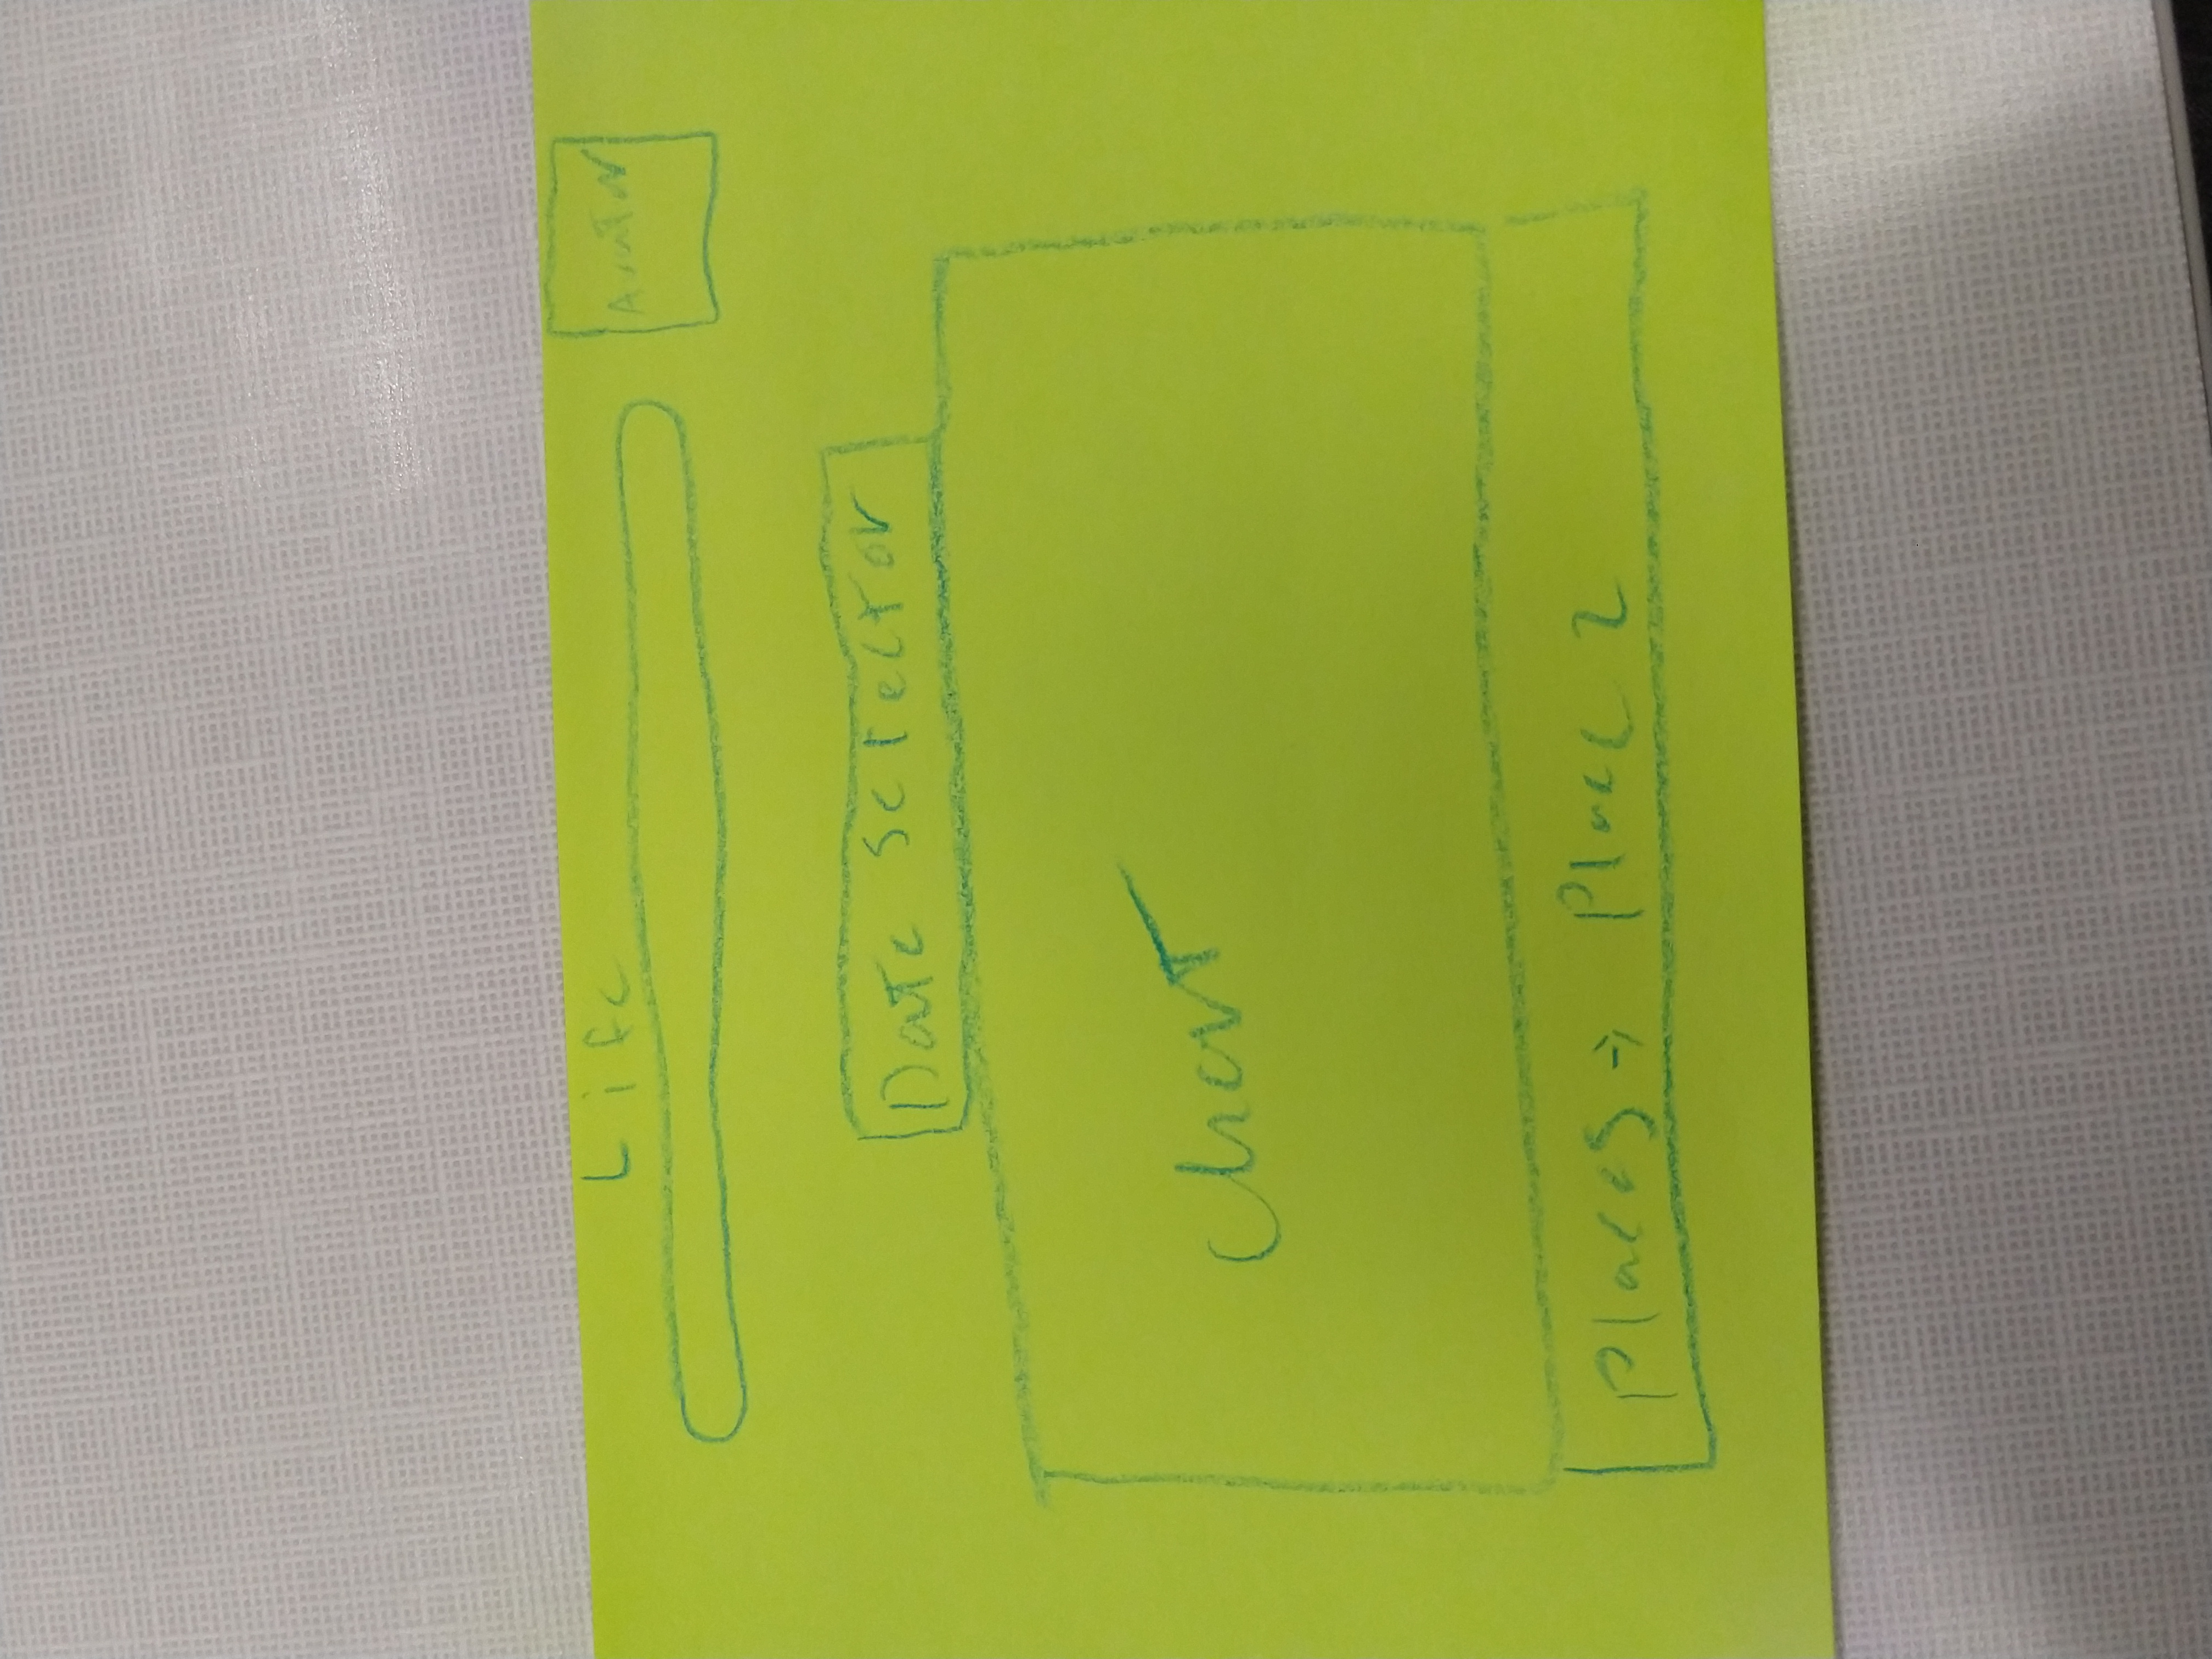 Life
Avatar
Date Selector
Chart
Places → Place 2